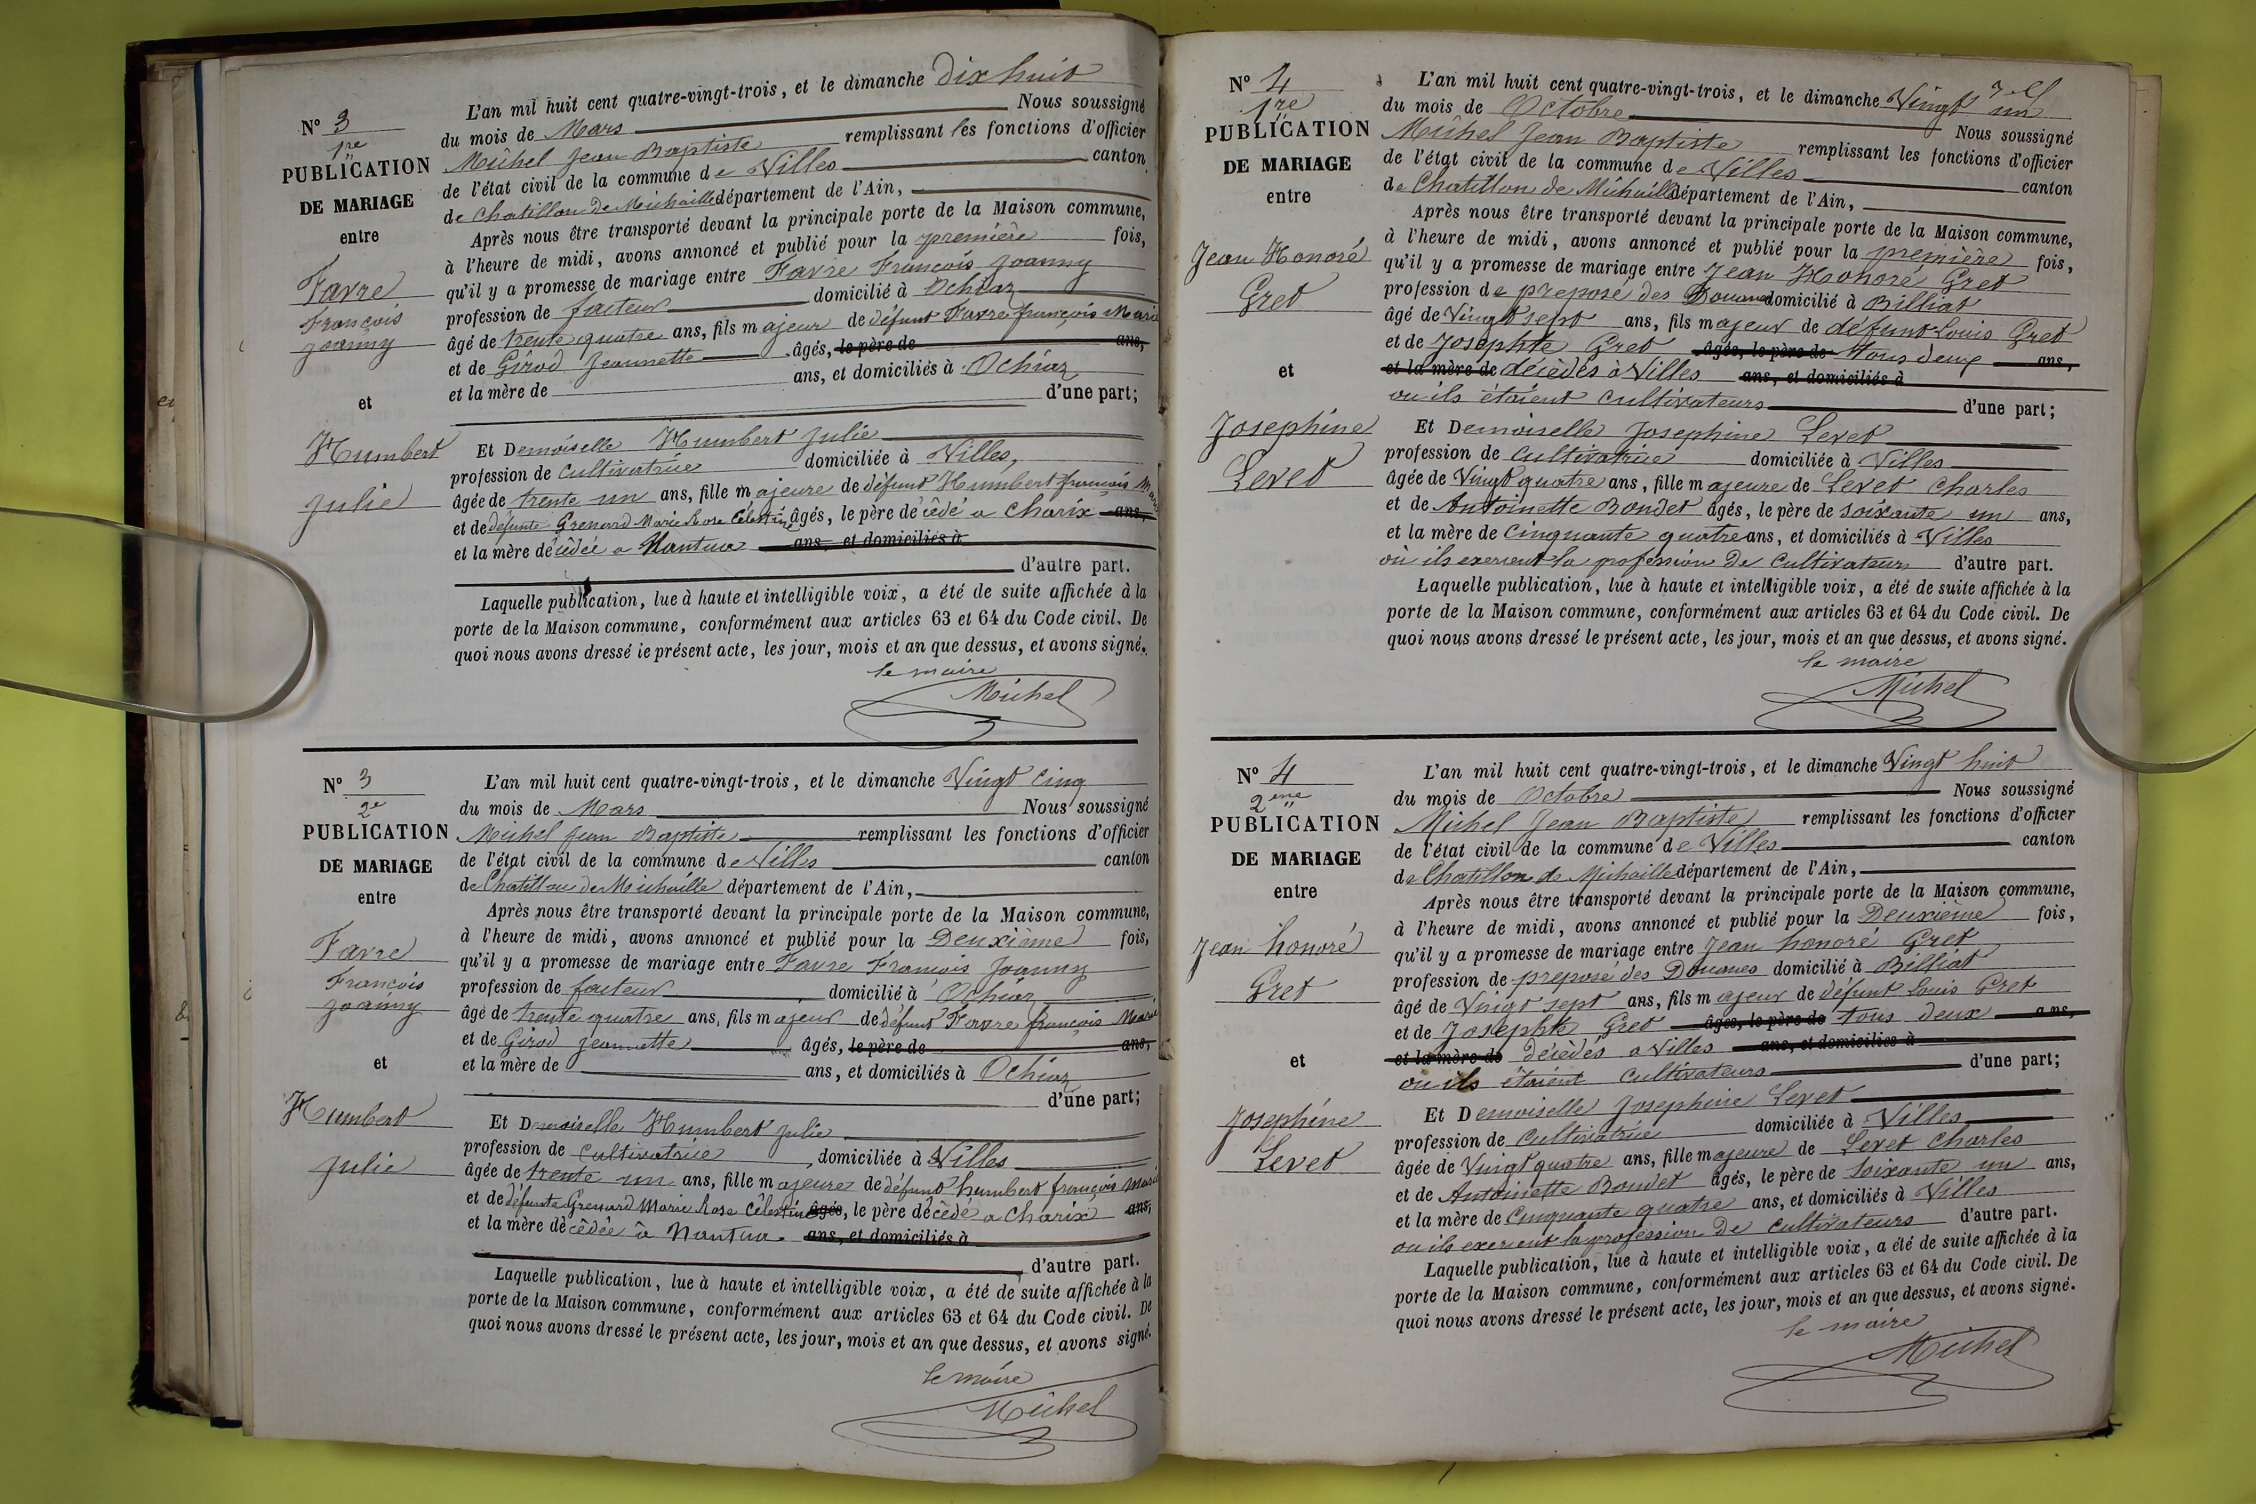 N° 3
1re
PUBLICATION
DE MARIAGE
entre
Favre
François
Joanny
et
Humbert
Julie
L'an mil huit cent quatre-vingt-trois, et le dimanche Dix huit
du mois de Mars Nous soussigné
Michel Jean Baptiste remplissant les fonctions d'officier
de l'état civil de la commune de Villes canton
de Chatillon de Michaille département de l'Ain,
Après nous être transporté devant la principale porte de la Maison commune,
à l'heure de midi, avons annoncé et publié pour la première fois,
qu'il y a promesse de mariage entre Favre François Joanny
profession de facteur domicilié à Ochiaz
âgé de trente quatre ans, fils majeur de défunt Favre françois Marie
et de Girod Jeannette âgés, le père de ans,
et la mère de ans, et domiciliés à Ochiaz
d'une part;
Et Demoiselle Humbert Julie
profession de cultivatrice domiciliée à Villes,
âgée de trente un ans, fille majeure de défunt Humbert françois Marie
et de défunte Grenard Marie Rose Célestine âgés, le père décédé a Charix ans,
et la mère décédée a Nantua ans, et domiciliés à
d'autre part.
Laquelle publication, lue à haute et intelligible voix, a été de suite affichée à la
porte de la Maison commune, conformément aux articles 63 et 64 du Code civil. De
quoi nous avons dressé le présent acte, les jour, mois et an que dessus, et avons signé.
le maire
Michel
N° 3
2e
PUBLICATION
DE MARIAGE
entre
Favre
François
Joanny
et
Humbert
Julie
L'an mil huit cent quatre-vingt-trois, et le dimanche Vingt cinq
du mois de Mars Nous soussigné
Michel Jean Baptiste remplissant les fonctions d'officier
de l'état civil de la commune de Villes canton
de Chatillon de Michaille département de l'Ain,
Après nous être transporté devant la principale porte de la Maison commune,
à l'heure de midi, avons annoncé et publié pour la Deuxième fois,
qu'il y a promesse de mariage entre Favre François Joanny
profession de facteur domicilié à Ochiaz
âgé de trente quatre ans, fils majeur de défunt Favre françois Marie
et de Girod Jeannette âgés, le père de ans,
et la mère de ans, et domiciliés à Ochiaz
d'une part;
Et Demoiselle Humbert Julie
profession de cultivatrice domiciliée à Villes
âgée de trente un ans, fille majeure de défunt humbert françois Marie
et de défunte Grenard Marie Rose Célestine âgés, le père décédé a Charix ans,
et la mère décédée à Nantua. ans, et domiciliés à
d'autre part.
Laquelle publication, lue à haute et intelligible voix, a été de suite affichée à la
porte de la Maison commune, conformément aux articles 63 et 64 du Code civil. De
quoi nous avons dressé le présent acte, les jour, mois et an que dessus, et avons signé.
le maire
Michel
N° 4
1re
PUBLICATION
DE MARIAGE
entre
Jean Honoré
Gret
et
Josephine
Levet
L'an mil huit cent quatre-vingt-trois, et le dimanche Vingt et un
du mois de Octobre Nous soussigné
Michel Jean Baptiste remplissant les fonctions d'officier
de l'état civil de la commune de Villes canton
de Chatillon de Michaille département de l'Ain,
Après nous être transporté devant la principale porte de la Maison commune,
à l'heure de midi, avons annoncé et publié pour la première fois,
qu'il y a promesse de mariage entre Jean Honoré Gret
profession de preposé des Douanes domicilié à Billiat
âgé de Vingt sept ans, fils majeur de défunt Louis Gret
et de Josephte Gret âgés, le père de tous deux ans,
et la mère de décédés a Villes ans, et domiciliés à
ou ils étaient cultivateurs d'une part;
Et Demoiselle Josephine Levet
profession de cultivatrice domiciliée à Villes
âgée de Vingt quatre ans, fille majeure de Levet Charles
et de Antoinette Boudet âgés, le père de soixante un ans,
et la mère de cinquante quatre ans, et domiciliés à Villes
où ils exercent la profession De cultivateurs d'autre part.
Laquelle publication, lue à haute et intelligible voix, a été de suite affichée à la
porte de la Maison commune, conformément aux articles 63 et 64 du Code civil. De
quoi nous avons dressé le présent acte, les jour, mois et an que dessus, et avons signé.
le maire
Michel
N° 4
2eme
PUBLICATION
DE MARIAGE
entre
Jean honoré
Gret
et
Josephine
Levet
L'an mil huit cent quatre-vingt-trois, et le dimanche Vingt huit
du mois de Octobre Nous soussigné
Michel Jean Baptiste remplissant les fonctions d'officier
de l'état civil de la commune de Villes canton
de Chatillon de Michaille département de l'Ain,
Après nous être transporté devant la principale porte de la Maison commune,
à l'heure de midi, avons annoncé et publié pour la Deuxième fois,
qu'il y a promesse de mariage entre Jean honoré Gret
profession de preposé des Douanes domicilié à Billiat
âgé de Vingt sept ans, fils majeur de défunt Louis Gret
et de Josephte Gret âgés, le père de tous deux ans,
et la mère de décédés a Villes ans, et domiciliés à
ou ils étaient cultivateurs d'une part;
Et Demoiselle Josephine Levet
profession de cultivatrice domiciliée à Villes
âgée de Vingt quatre ans, fille majeure de Levet Charles
et de Antoinette Boudet âgés, le père de soixante un ans,
et la mère de cinquante quatre ans, et domiciliés à Villes
ou ils exercent la profession De cultivateurs d'autre part.
Laquelle publication, lue à haute et intelligible voix, a été de suite affichée à la
porte de la Maison commune, conformément aux articles 63 et 64 du Code civil. De
quoi nous avons dressé le présent acte, les jour, mois et an que dessus, et avons signé.
le maire
Michel